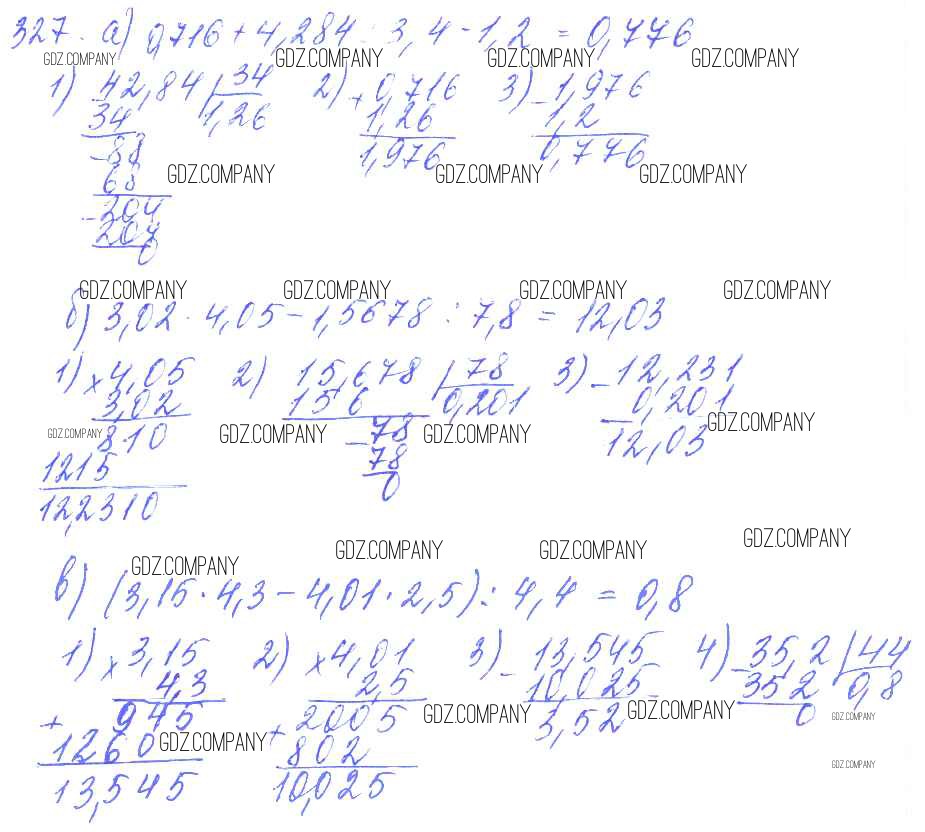 327. а) 0,716 + 4,284 : 3,4 - 1,2 = 0,776
GDZ.COMPANY GDZ.COMPANY GDZ.COMPANY GDZ.COMPANY
1) 42,84 34 2) + 0,716 3) - 1,976
34 1,26 1,26 1,2
- 88 1,976 0,776
68 GDZ.COMPANY GDZ.COMPANY GDZ.COMPANY
- 204
204
0
GDZ.COMPANY GDZ.COMPANY GDZ.COMPANY GDZ.COMPANY
б) 3,02 · 4,05 - 1,5678 : 7,8 = 12,03
1) × 4,05 2) 15,678 78 3) - 12,231
3,02 156 0,201 0,201
GDZ.COMPANY 810 GDZ.COMPANY - 78 GDZ.COMPANY 12,03 GDZ.COMPANY
1215 78
12,2310 0
GDZ.COMPANY GDZ.COMPANY GDZ.COMPANY GDZ.COMPANY
в) (3,15 · 4,3 - 4,01 · 2,5) : 4,4 = 0,8
1) × 3,15 2) × 4,01 3) - 13,545 4) - 35,2 44
4,3 2,5 10,025 352 0,8
+ 945 + 2005 GDZ.COMPANY 3,52 GDZ.COMPANY 0 GDZ.COMPANY
1260 GDZ.COMPANY 802
13,545 10,025 GDZ.COMPANY